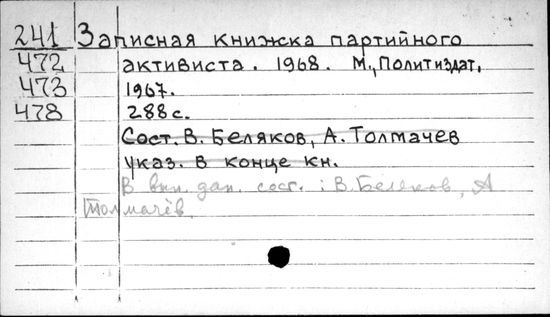 241 Записная книжка партийного
472 активиста. 1968. М., Политиздат,
473 1967.
478 288 с.
Сост. В. Беляков, А. Толмачев
указ. в конце кн.
В вып. дан. сост.: В. Беляков, А
Толмачёв